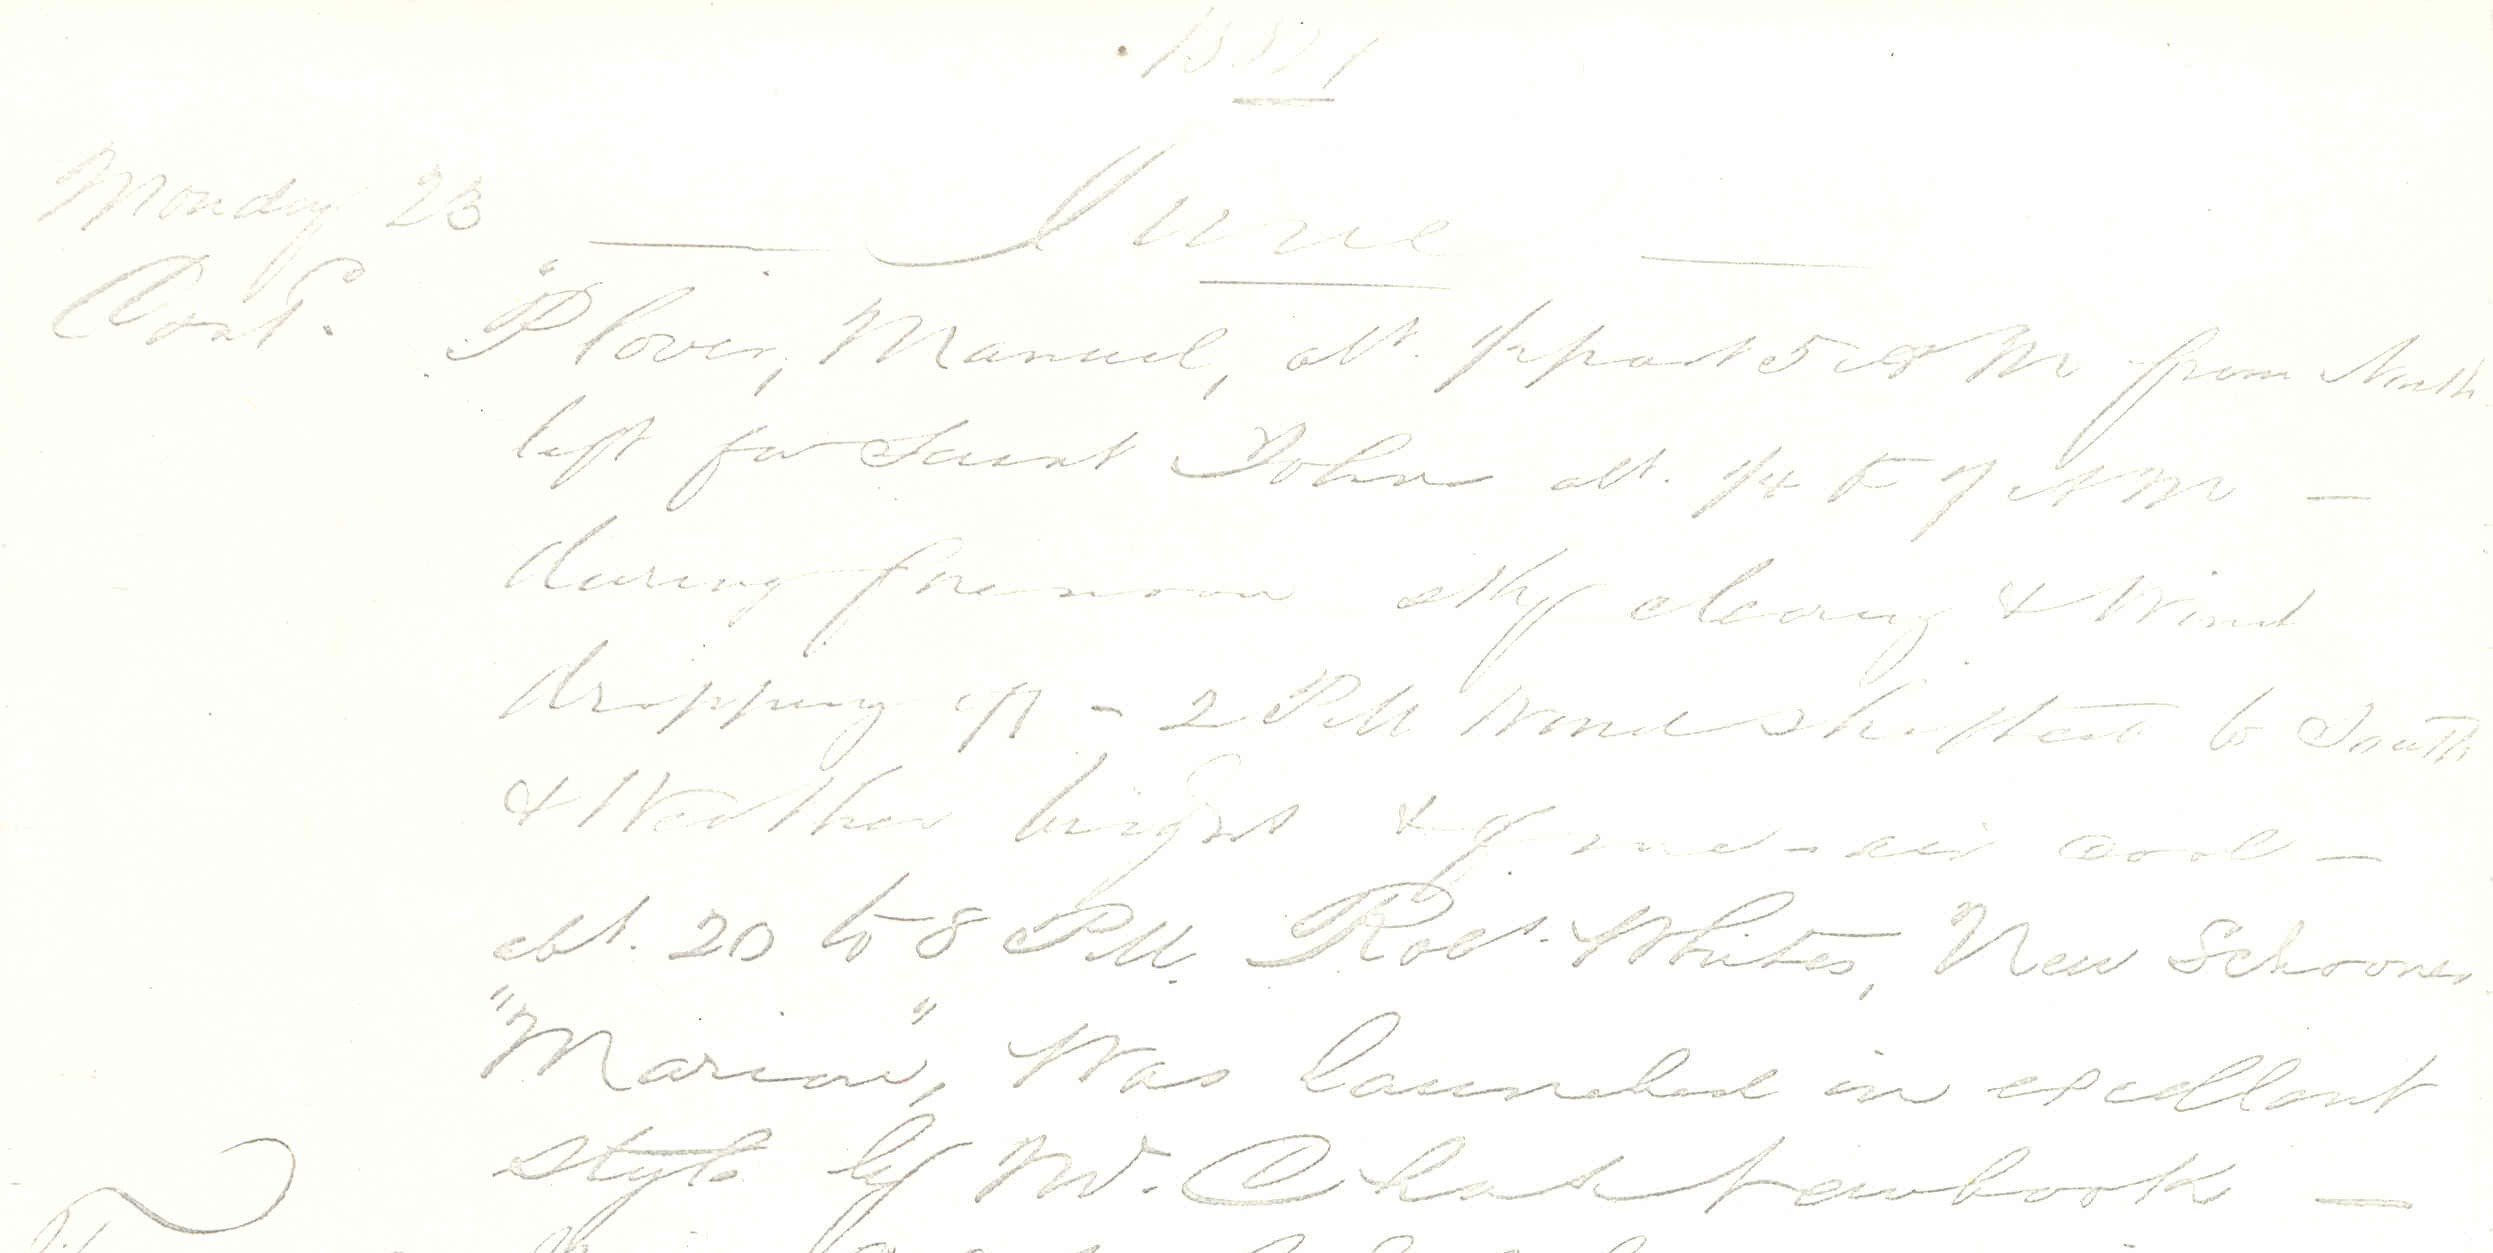 June
Monday 23
Cont.
"Plover, Manuel, at. ½ past 5 A M from North
left for Saint John at. ¼ to 7 A M —
during forenoon sky clearing & Wind
dropping off - 2 PM Wind shifted to South
& Weather bright & fine - air cool —
at. 20 to 8 PM. Robt. Whites, New Schooner
"Marion", Was launched in excellent
Style by Mr. Chas